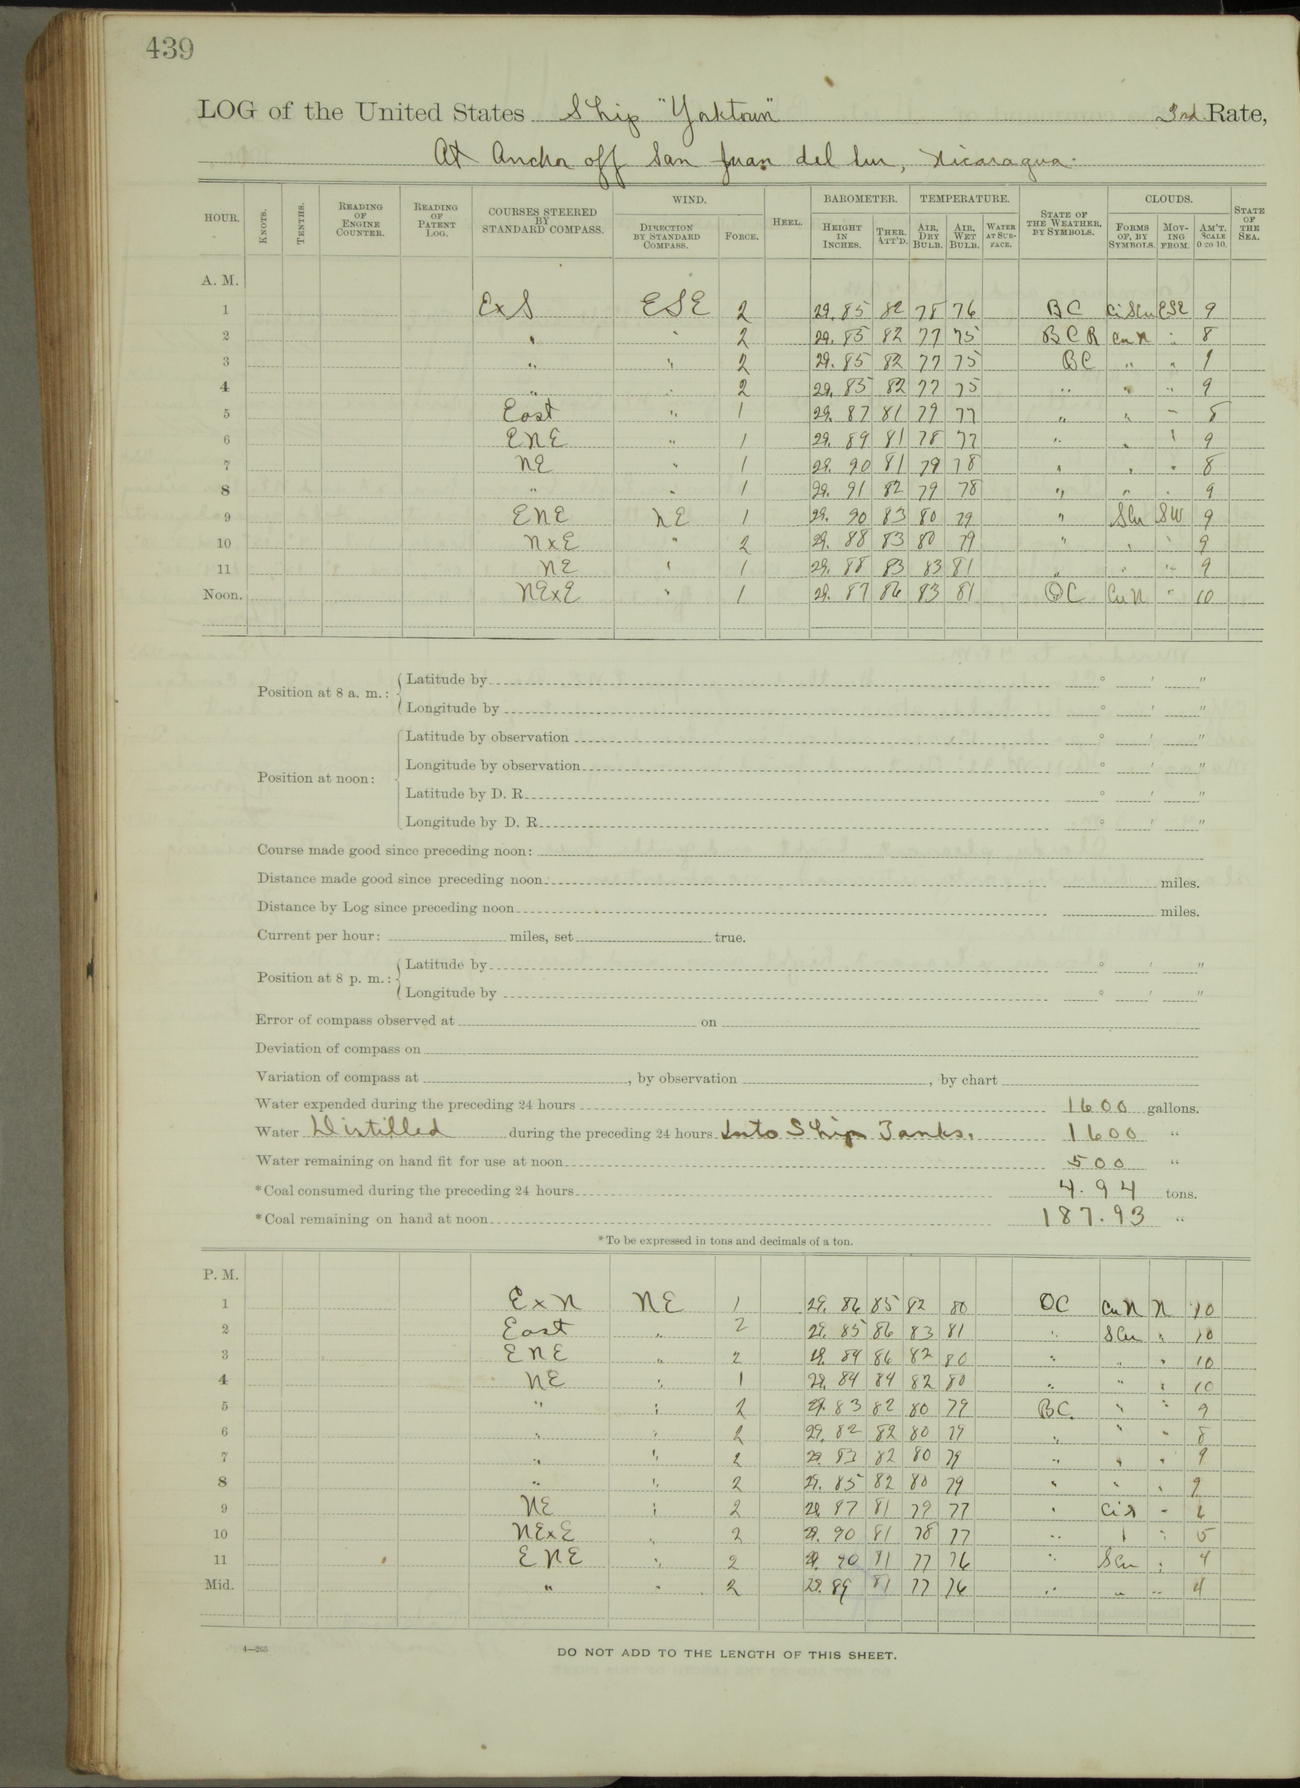 439
LOG of the United States Ship "Yorktown" 3rd Rate,
At Anchor off San Juan del Sur, Nicaragua.
HOUR. KNOTS. TENTHS. READING OF ENGINE COUNTER. READING OF PATENT LOG. COURSES STEERED BY STANDARD COMPASS. WIND. DIRECTION BY STANDARD COMPASS. FORCE. HEEL. BAROMETER. HEIGHT IN INCHES. THER. ATT'D. TEMPERATURE. AIR, DRY BULB. AIR, WET BULB. WATER AT SURFACE. STATE OF THE WEATHER, BY SYMBOLS. CLOUDS. FORMS OF, BY SYMBOLS. MOVING FROM. AM'T. SCALE 0 TO 10. STATE OF THE SEA.
A. M.
1 ExS ESE 2 29.85 82 78 76 BC Ci SCu ESE 9
2 " " 2 29.85 82 77 75 BCR Cu N " 8
3 " " 2 29.85 82 77 75 BC " "
4 " " 2 29.85 82 77 75 " " " 9
5 East " 1 29.87 81 79 77 " " " 8
6 ENE " 1 29.89 81 78 77 " " " 9
7 NE " 1 29.90 81 79 78 " " " 8
8 " " 1 29.91 82 79 78 " " " 9
9 ENE NE 1 29.90 83 80 79 " SCu SW 9
10 NxE " 2 29.88 83 80 79 " " " 9
11 NE " 1 29.88 83 83 81 " " " 9
Noon. NExE " 1 29.87 86 83 81 OC Cu N " 10
Position at 8 a. m.: Latitude by ° ' "
Longitude by ° ' "
Position at noon: Latitude by observation ° ' "
Longitude by observation ° ' "
Latitude by D. R. ° ' "
Longitude by D. R. ° ' "
Course made good since preceding noon:
Distance made good since preceding noon miles.
Distance by Log since preceding noon miles.
Current per hour: miles, set true.
Position at 8 p. m.: Latitude by ° ' "
Longitude by ° ' "
Error of compass observed at on
Deviation of compass on
Variation of compass at , by observation , by chart
Water expended during the preceding 24 hours 1600 gallons.
Water Distilled during the preceding 24 hours Into Ships Tanks. 1600 "
Water remaining on hand fit for use at noon 500 "
*Coal consumed during the preceding 24 hours 4.94 tons.
*Coal remaining on hand at noon 187.93 "
*To be expressed in tons and decimals of a ton.
P. M.
1 ExN NE 1 29.86 85 82 80 OC Cu N N 10
2 East " 2 29.85 86 83 81 " SCu " 10
3 ENE " 2 29.84 86 82 80 " " " 10
4 NE " 1 29.84 84 82 80 " " " 10
5 " " 2 29.83 82 80 79 BC. " " 9
6 " " 2 29.82 82 80 79 " " " 8
7 " " 2 29.83 82 80 79 " " " 9
8 " " 2 29.85 82 80 79 " " " 9
9 NE " 2 29.87 81 79 77 " Ci S " 6
10 NExE " 2 29.90 81 78 77 " " " 5
11 ENE " 2 29.90 81 77 76 " SCu " 4
Mid. " " 2 29.89 81 77 76 " " " 4
4—265
DO NOT ADD TO THE LENGTH OF THIS SHEET.